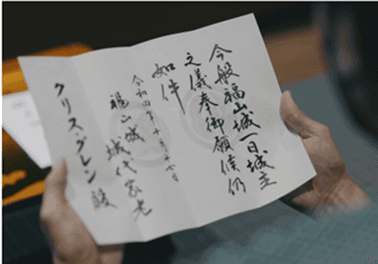 今般福山城一日城主
之儀奉御願候仍
如件
令和四年十月十七日
福山城
城代家老
クリス・グレン殿